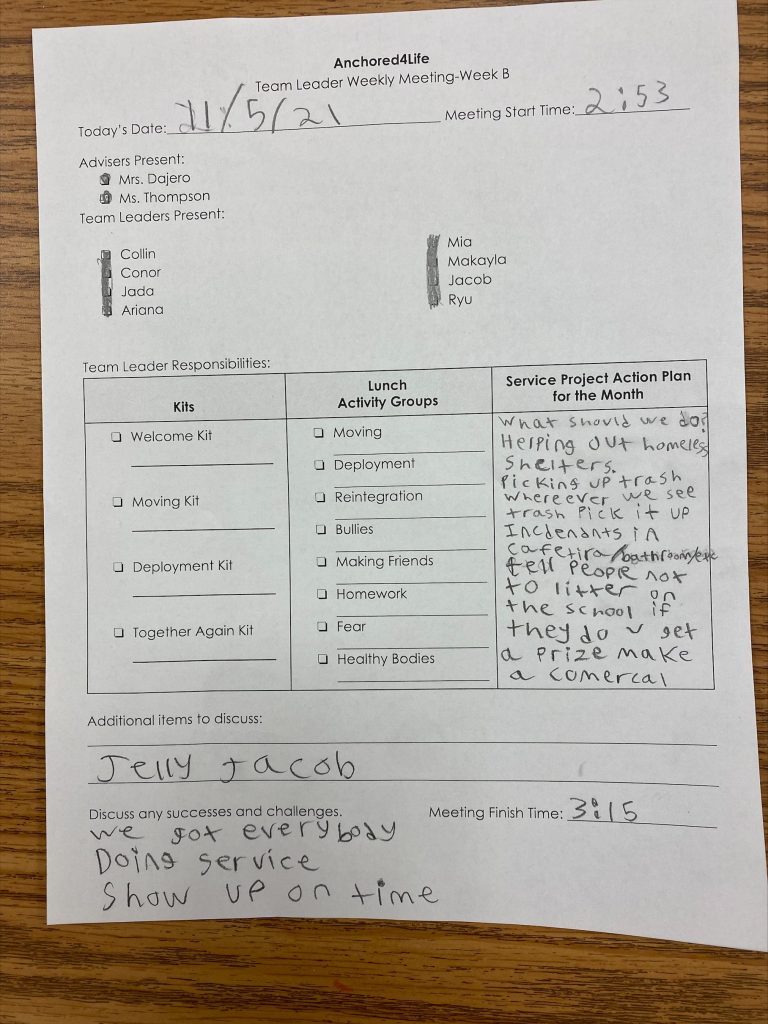 Anchored4Life
Team Leader Weekly Meeting-Week B
Today's Date: 11/5/21 Meeting Start Time: 2:53
Advisers Present:
Mrs. Dajero
Ms. Thompson
Team Leaders Present:
Collin
Conor
Jada
Ariana
Mia
Makayla
Jacob
Ryu
Team Leader Responsibilities:
Kits
Welcome Kit
Moving Kit
Deployment Kit
Together Again Kit
Lunch
Activity Groups
Moving
Deployment
Reintegration
Bullies
Making Friends
Homework
Fear
Healthy Bodies
Service Project Action Plan
for the Month
What should we do?
Helping out homeless
shelters.
Picking up trash
whereever we see
trash Pick it up
Incdenants in
cafetira/bathroom/etc
tell people not
to litter on
the school if
they do get
a prize make
a comercal
Additional items to discuss:
Jelly Jacob
Discuss any successes and challenges. Meeting Finish Time: 3:15
we got everybody
Doing service
Show up on time